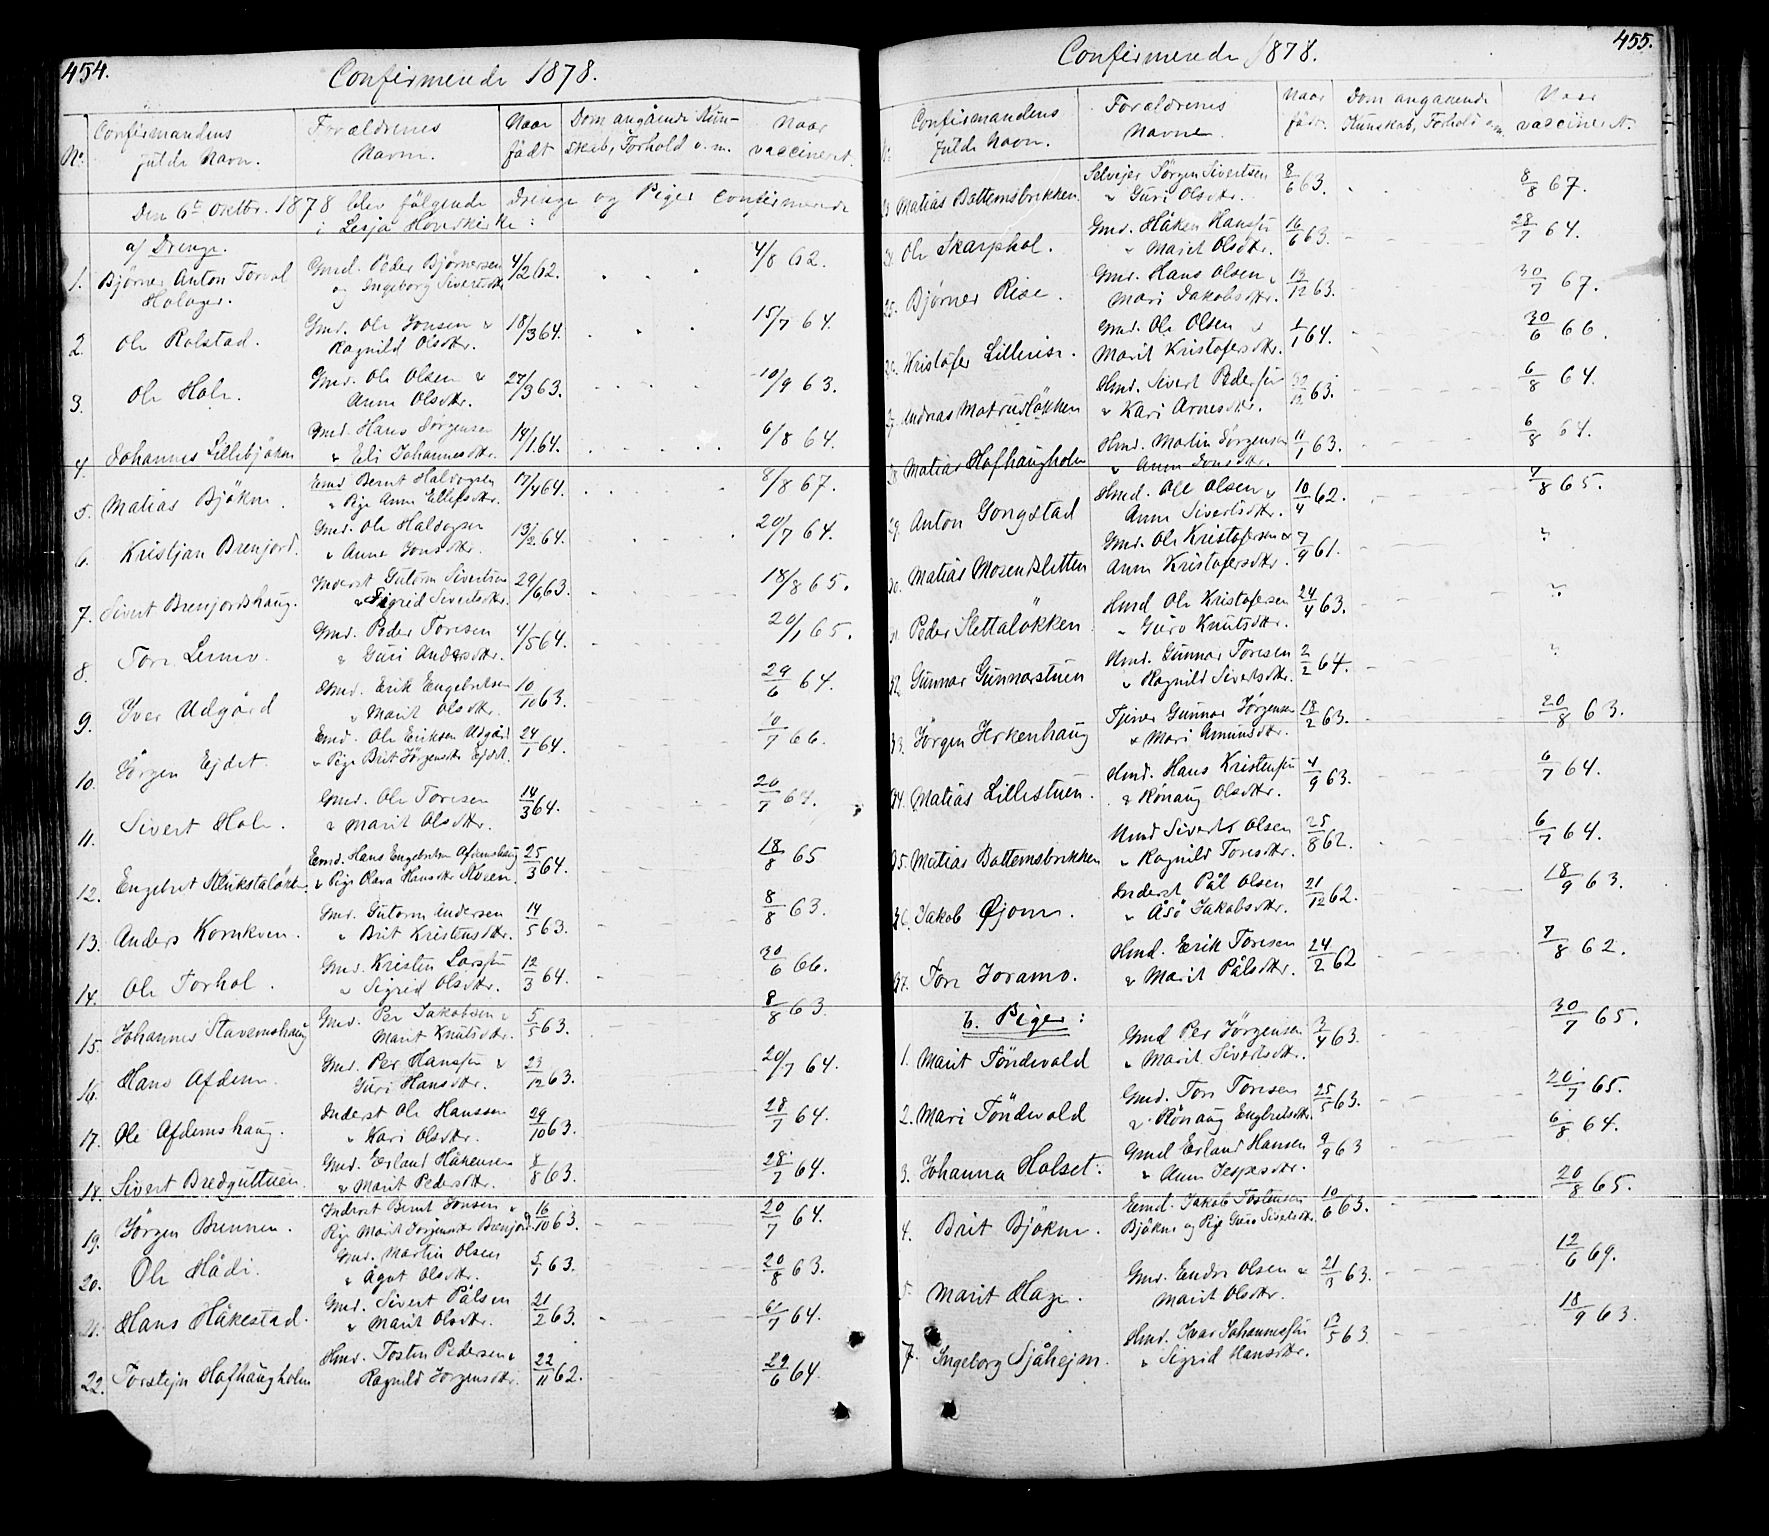 454.
Confirmerede 1878.
No. Confirmandens fulde Navn. Forældrenes Navne. Naar født Dom angående Kun- skab, Forhold o. m. Naar vaccineret.
Den 6te Oktbr. 1878 blev følgende Drenge og Piger confirmerede
i Lesja Hovedkirke:
a) Drenge.
1. Bjørner Anton Holager. Gmd. Peder Bjørnersen og Ingeborg Sivertsdtr 4/2 62. 4/8 62.
2. Ole Rolstad. Gmd. Ole Jonsen & Ragnild Olsdtr. 18/3 64. 15/7 64.
3. Ole Hole. Gmd. Ole Olsen & Anne Olsdtr. 27/3 63. 10/9 63.
4. Johannes Lillebjøkne Gmd. Hans Jørgensen & Eli Johannesdtr. 14/1 64. 6/8 64.
5. Matias Bjøkne. Emd Bernt Haldogsen & Pige Anne Ellefsdtr. 17/4 64. 8/8 67.
6. Kristjan Brenjord. Gmd. Ole Haldogsen & Anne Jonsdtr. 13/2 64. 20/7 64.
7. Sivert Brenjordshaug. Inderst Gutorm Sivertsen & Sigrid Sivertsdtr. 29/6 63. 18/8 65.
8. Tore Lemo. Gmd. Peder Toresen & Guri Andersdtr. 4/5 64. 20/1 65.
9. Iver Udgård Gmd. Erik Engebretsen & Marit Olsdtr. 10/10 63. 29/6 64.
10. Jørgen Ejdet. Emd. Ole Eriksen Udgård & Pige Brit Jørgensdtr Ejdet. 24/1 64. 10/7 66.
11. Sivert Hole. Gmd. Ole Toresen & Marit Olsdtr. 14/3 64. 20/7 64.
12. Engebret Emd. Hans Engebretsen Afdemshaug & Pige Olava Hansdtr 25/3 64. 18/8 65
13. Anders Kornkven. Gmd. Gutorm Andersen & Brit Kristensdtr. 14/5 63. 8/8 63.
14. Ole Torhol. Gmd. Kristen Larssøn & Sigrid Olsdtr. 12/3 64. 30/6 66.
15. Johannes Stavemshaug Gmd. Per Jakobsen & Marit Knutsdtr. 5/5 63. 8/8 63.
16. Hans Afdem. Gmd. Per Hanssøn & Guri Hansdtr. 23/12 63. 20/7 64.
17. Ole Afdemshaug. Inderst Ole Hanssen & Kari Olsdtr. 29/10 63. 28/7 64.
18. Sivert Bredguttuen. Gmd. Erland Håkensen & Marit Pedersdtr. 8/8 63. 28/7 64.
19. Jørgen Brennen. Inderst Bernt Jonsen & Pige Marit Jørgensdtr Brenjord 16/10 63. 20/7 64.
20. Ole Hådi. Gmd. Martin Olsen & Ågot Olsdtr. 5/1 63. 20/8 63.
21. Hans Håkestad. Gmd. Sivert Pålsen & Marit Olsdtr. 21/2 63. 6/7 64.
22. Torstejn Hofhaugholen Hmd. Tosten Pedersen & Ragnild Jørgensdtr. 22/11 62. 29/6 64.
455.
Confirmerede 1878.
No. Confirmandens fulde Navn. Forældrenes Navne. Naar født. Dom angaaende Kunskab, Forhold o. m. Naar vaccineret.
23 Matias Bottemsbrekken. Selvejer Jørgen Sivertsen & Guri Olsdtr. 8/6 63. 8/8 67.
24. Ole Skarphol. Gmd. Håken Hanssøn & Marit Olsdtr. 16/6 63. 28/7 64.
25. Bjørner Rise. Gmd. Hans Olsen & Mari Jakobsdtr. 13/12 63. 30/7 67.
26. Kristofer Lillerise. Gmd. Ole Olsen & Marit Kristofersdtr. 1/1 64. 30/6 66.
27. Andreas Hmd. Sivert Pederssøn & Kari Arnesdtr. 63. 6/8 64.
28. Matias Hofhaugholen Hmd. Martin Jørgensen & Anne Jonsdtr. 11/1 63. 6/8 64.
29. Anton Gongstad Hmd. Ole Olsen & Anne Sivertsdtr. 10/4 62. 7/8 65.
30. Matias Mosensletten Gmd. Ole Kristofersen & Anne Kristofersdtr. 7/9 61. ?
31. Peder Slettaløkken. Hmd Ole Kristofersen & Guro Knutsdtr. 24/4 63. ?
32. Gunnar Gunnarstuen Hmd. Gunnar Toresen & Ragnild Sivertsdtr. 2/2 64. ?
33. Jørgen Horkenhaug Tjener Gunnar Jørgensen & Mari Amundsdtr. 18/2 63. 20/8 63.
34. Matias Lillestuen. Hmd. Hans Kristenssøn & Rønaug Olsdtr. 4/9 63. 6/7 64.
35. Matias Bottemsbrekken Hmd Siverts Olsen & Ragnild Toresdtr. 25/8 62. 6/7 64.
36. Jakob Øjom. Inderst Pål Olsen & Åsø Jakobsdtr. 21/12 62. 18/9 63.
37. Tore Joramo. Hmd. Erik Toresen & Marit Pålsdtr. 24/2 62 7/8 62.
b. Piger:
1. Marit Töndevold Gmd Per Jørgensen & Marit Sivertsdtr. 3/4 63. 30/7 65.
2. Mari Töndevold Gmd. Tore Toresen & Rønaug Engbretsdtr. 25/5 63. 20/7 65.
3. Johanna Holset. Gmd Erland Hansen & Anne Jespersdtr. 9/9 63 6/8 64.
4. Brit Bjøkne. Emd. Jakob Tostensen Bjøkne og Pige Guro Sivertsdtr 10/6 63. 20/8 65.
5. Marit Hage. Gmd. Endre Olsen & Marit Olsdtr. 21/3 63. 12/6 69.
7. Ingeborg Sjåhejm. Hmd. Ivar Johannessøn & Sigrid Hansdtr. 17/5 63. 18/9 63.